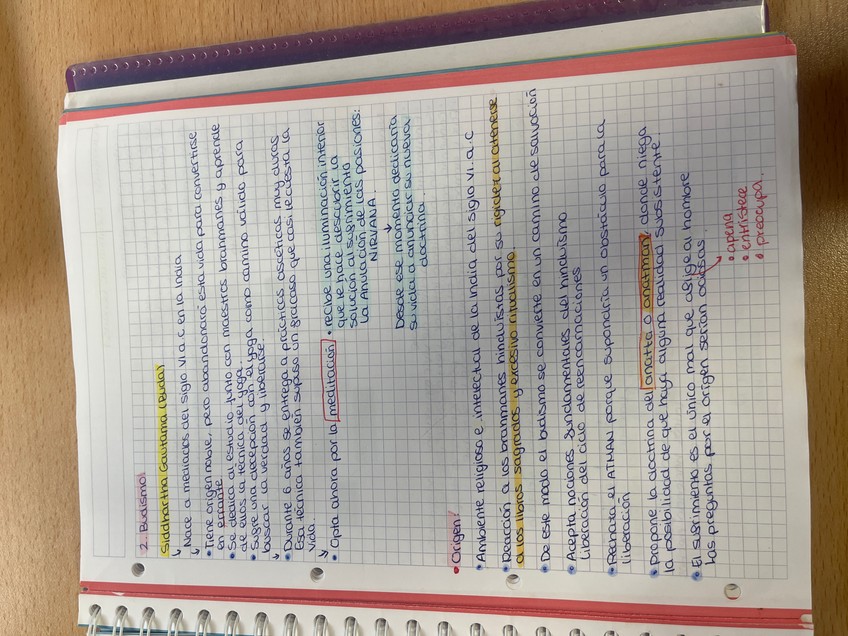 2. Budismo
Siddhartha Gautama (Buda)
↳ Nace a mediados del siglo VI a.C en la India
• Tiene origen noble, pero abandonará esta vida para convertirse
en errante
• Se dedica al estudio junto con maestros branmanes y aprende
de ellos la técnica del yoga.
• Sufre una decepción con el yoga como camino válido para
buscar la verdad y liberarse.
• Durante 6 años se entrega a prácticas ascéticas muy duras.
Esa técnica también supuso un fracaso que casi le cuesta la
vida
• Opta ahora por la meditación
• recibe una iluminación interior
que le hace descubrir la
solución al sufrimiento
La Anulación de las pasiones:
NIRVANA.
↓
Desde ese momento dedicaría
su vida a anunciar su nueva
doctrina.
• Origen:
• Ambiente religioso e intelectual de la India del siglo VI. a.C
• Reacción a los branmanes hinduistas por su rigidez al atenerse
a los libros sagrados y excesivo ritualismo.
• De este modo el budismo se convierte en un camino de salvación
• Acepta nociones fundamentales del hinduísmo
Liberación del ciclo de reencarnaciones
• Rechaza el ATMAN porque supondría un obstáculo para la
liberación
• Propone la doctrina del anatta o anatman donde niega
la posibilidad de que haya alguna realidad subsistente.
• El sufrimiento es el único mal que aflige al hombre
Las preguntas por el origen serían ociosas.
• apena
• entristece
• preocupa.